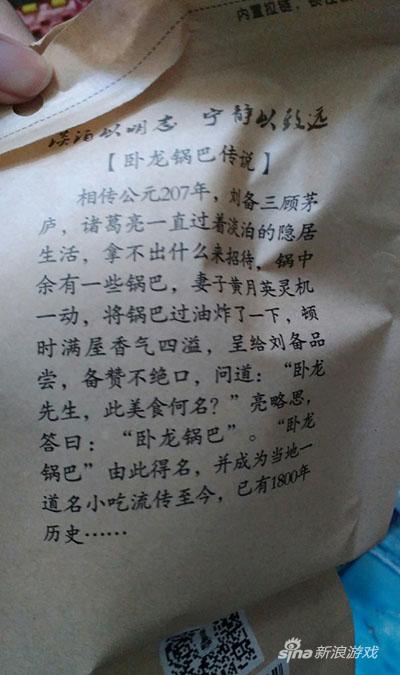 内置拉链,
淡泊以明志 宁静以致远
【卧龙锅巴传说】
相传公元207年,刘备三顾茅
庐,诸葛亮一直过着淡泊的隐居
生活,拿不出什么来招待,锅中
余有一些锅巴,妻子黄月英灵机
一动,将锅巴过油炸了一下,顿
时满屋香气四溢,呈给刘备品
尝,备赞不绝口,问道:“卧龙
先生,此美食何名?”亮略思,
答曰:“卧龙锅巴”。“卧龙
锅巴”由此得名,并成为当地一
道名小吃流传至今,已有1800年
历史……
sina新浪游戏